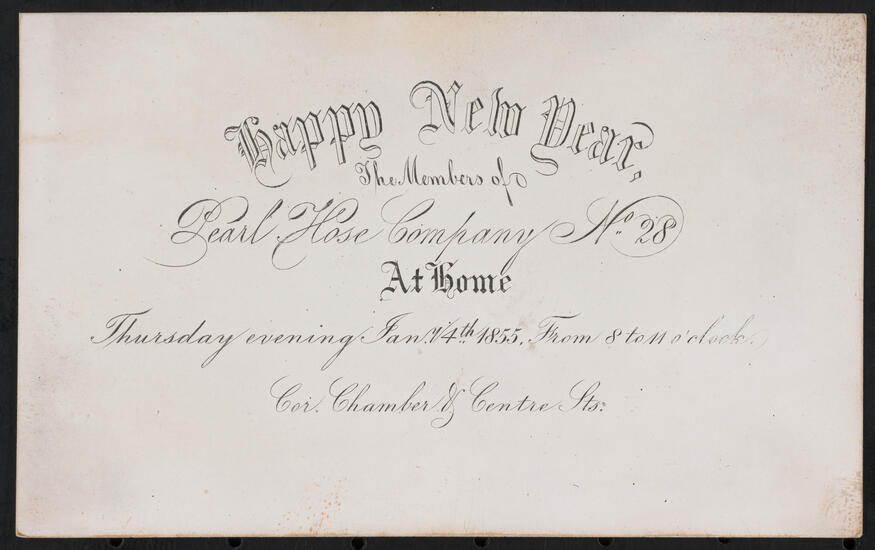 Happy New Year,
The Members of
Pearl Hose Company No. 28
At Home
Thursday evening Jan.y 4th 1855, From 8 to 11 o'clock.
Cor. Chamber & Centre Sts.